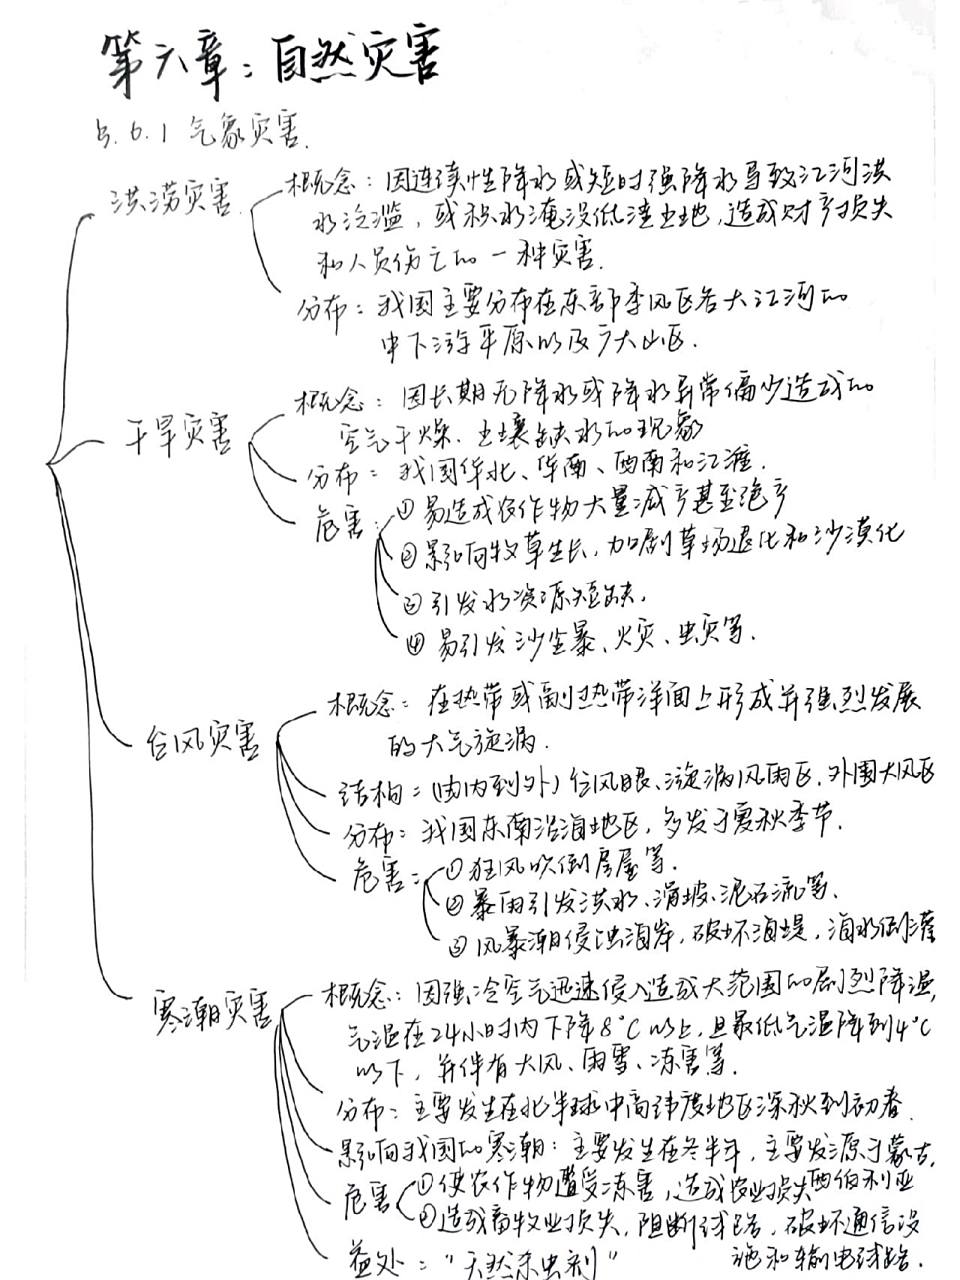 第六章：自然灾害
§.6.1 气象灾害.
洪涝灾害
概念：因连续性降水或短时强降水导致江河洪
水泛滥，或积水淹没低洼土地，造成财产损失
和人员伤亡的一种灾害.
分布：我国主要分布在东部季风区各大江河的
中下游平原以及广大山区.
干旱灾害
概念：因长期无降水或降水异常偏少造成的
空气干燥、土壤缺水的现象
分布：我国华北、华南、西南和江淮.
危害：①易造成农作物大量减产甚至绝产
②影响牧草生长，加剧草场退化和沙漠化
③引发水资源短缺.
④易引发沙尘暴、火灾、虫灾等.
台风灾害
概念：在热带或副热带洋面上形成并强烈发展
的大气旋涡.
结构：(由内到外)台风眼、漩涡风雨区、外围大风区
分布：我国东南沿海地区，多发于夏秋季节.
危害：①狂风吹倒房屋等.
②暴雨引发洪水、滑坡、泥石流等.
③风暴潮侵蚀海岸，破坏海堤，海水倒灌
寒潮灾害
概念：因强冷空气迅速侵入造成大范围的剧烈降温，
气温在24小时内下降8°C以上，且最低气温降到4°C
以下，并伴有大风、雨雪、冻害等.
分布：主要发生在北半球中高纬度地区深秋到初春.
影响我国的寒潮：主要发生在冬半年，主要发源于蒙古，
西伯利亚
危害 ①使农作物遭受冻害，造成农业损失
②造成畜牧业损失，阻断线路，破坏通信设
施和输电线路.
益处："天然杀虫剂"